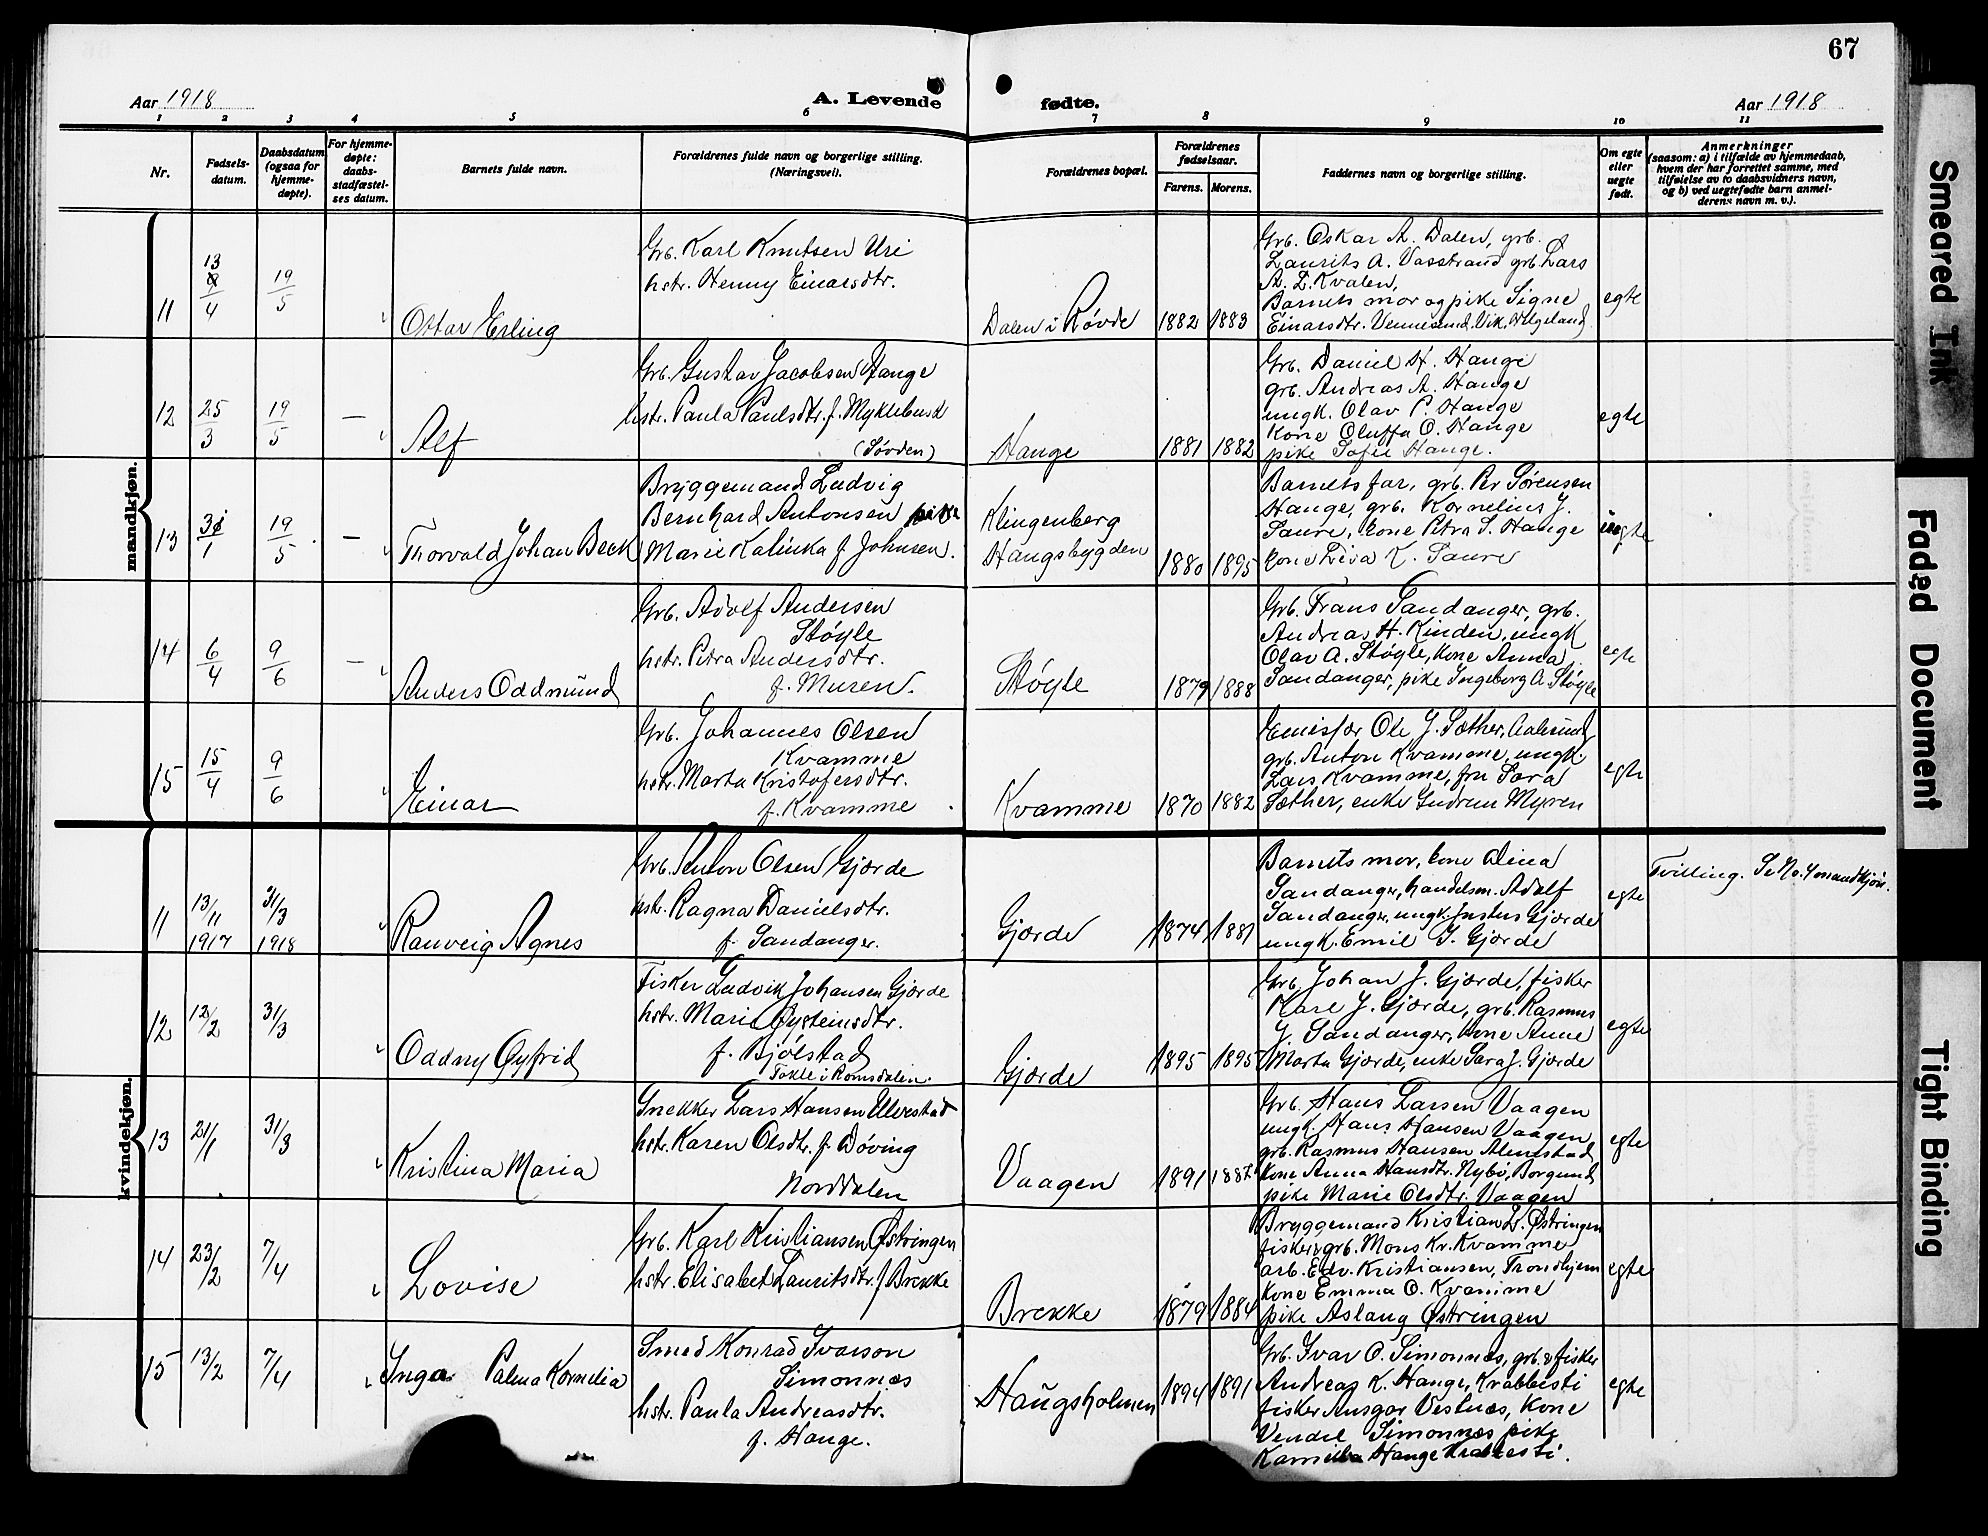 67
Aar 1918
A. Levende
fødte.
Aar 1918
1 2 3 4 5 6 7 8 9 10 11
Nr.
Fødsels-
datum.
Daabsdatum
(ogsaa for
hjemme-
døpte).
For hjemme-
døpte:
daabs-
stadfæstel-
ses datum.
Barnets fulde navn.
Forældrenes fulde navn og borgerlige stilling.
(Næringsvei).
Forældrenes bopæl.
Forældrenes
fødselsaar.
Farens. Morens.
Faddernes navn og borgerlige stilling.
Om egte
eller
uegte
født.
Anmerkninger
(saasom: a) i tilfælde av hjemmedaab,
hvem der har forrettet samme, med
tilføielse av to daabsvidners navn,
og b) ved uegtefødte barn anmel-
derens navn m. v.).
mandkjøn.
11
13
9/4
19/5
Ottar Erling
Grb. Karl Knutsen Uri
hstr. Henny Einarsdtr.
Dalen i Røvde
1882 1883
Grb. Oskar A. Dalen, grb.
Laurits A. Vasstrand grb. Lars
A. L. Kvalen,
Barnets mor og pike Signe
Einarsdtr. Vennesund, Vik, Helgeland
egte
12
25/3
19/5
—
Alf
Grb. Gustav Jacobsen Hauge
hstr. Paula Paulsdtr. f. Myklebust
(Søvden)
Hauge
1881 1882
Grb. Daniel H. Hauge
grb. Andreas A. Hauge
ungk. Olav P. Hauge
Kone Oluffa O. Hauge
pike Sofie Hauge.
egte
13
31/1
19/5
—
Thorvald Johan Beck
Bryggemand Ludvig
Bernhard Antonsen pike
Marie Kalinka f Johnsen.
Klingenberg
Haugsbygden
1880 1895
Barnets far, grb. Per Sørensen
Hauge, grb. Kornelius J.
Saure, kone Petra S. Hauge
kone Liva K. Saure
uegte
14
6/4
9/6
—
Anders Oddmund
Grb. Adolf Andersen
Støyle
hstr. Petra Andersdtr.
f. Muren.
Støyle
1879 1888
Grb. Frans Sandanger, grb.
Andreas H. Kinden, ungk
Olav A. Støyle, kone Anna
Sandanger, pike Ingeborg A. Støyle
egte
15
15/4
9/6
Einar
Grb. Johannes Olsen
Kvamme
hstr. Marta Kristofersdtr.
f. Kvamme
Kvamme
1870 1882
Emisfær Ole J. Sæther, Aalesund,
grb. Anton Kvamme, ungk.
Lars Kvamme, fru Sara
Sæther, enke Gudrun Myren
egte
kvindekjøn.
11
13/11
1917
31/3
1918
Rauveig Agnes
Grb. Anton Olsen Gjørde
hstr. Ragna Danielsdtr.
f. Sandanger.
Gjørde
1874 1881
Barnets mor, kone Dina
Sandanger, handelsm. Adolf
Sandanger, ungk. Justus Gjørde
ungk. Emil J. Gjørde
egte
Tvilling. Se No. 4 mandkjøn.
12
12/2
31/3
Oddny Øyfrid
Fisker Ludvik Johansen Gjørde
hstr. Marie Øysteinsdtr.
f. Bjølstad
Tokle i Romsdalen.
Gjørde
1895 1895
Grb. Johan J. Gjørde, fisker
Karl J. Gjørde, grb. Rasmus
J. Sandanger, kone Anne
Marta Gjørde, enke Sara J. Gjørde
egte
13
21/1
31/3
Kristina Maria
Snekker Lars Hansen Ulvestad
hstr. Karen Olsdtr. f. Døving
Norddalen
Vaagen
1891 1887
Grb. Hans Larsen Vaagen
ungk. Hans Hansen Vaagen,
grb. Rasmus Hansen Almestad
kone Anna Hansdtr. Nybø, Borgund
pike Marie Olsdtr. Vaagen
egte
14
23/2
7/4
Lovise
Grb. Karl Kristiansen Østringen
hstr. Elisabet Lauritsdtr. f Brekke
Brekke
1879 1884
Bryggemand Kristian L. Østringen
fisker, grb. Mons Kr. Kvamme
arb. Edv. Kristiansen, Trondhjem
kone Emma O. Kvamme
pike Aslaug Østringen
egte
15
13/2
7/4
Inga Palma Kornelia
Smed Konrad Ivarson
Simonnæs
hstr. Paula Andreasdtr.
f. Hauge.
Haugsholmen
1894 1891
Grb. Ivar O. Simonnæs, grb. & fisker
Andreas K. Hauge, Krabbesti
fisker Ansgar Vestnæs, kone
Vendel Simonnæs pike
Kamilla Hauge Krabbesti.
egte
Smeared Ink
Faded Document
Tight Binding